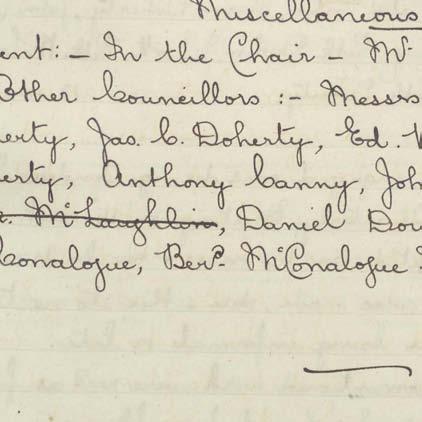 Miscellaneous
ent:- In the Chair - Mr
Other Councillors :- Messrs
erty, Jas. C. Doherty, Ed.
erty, Anthony Canny, Joh
McLaughlin, Daniel Do
Conalogue, Berd. McConalogue